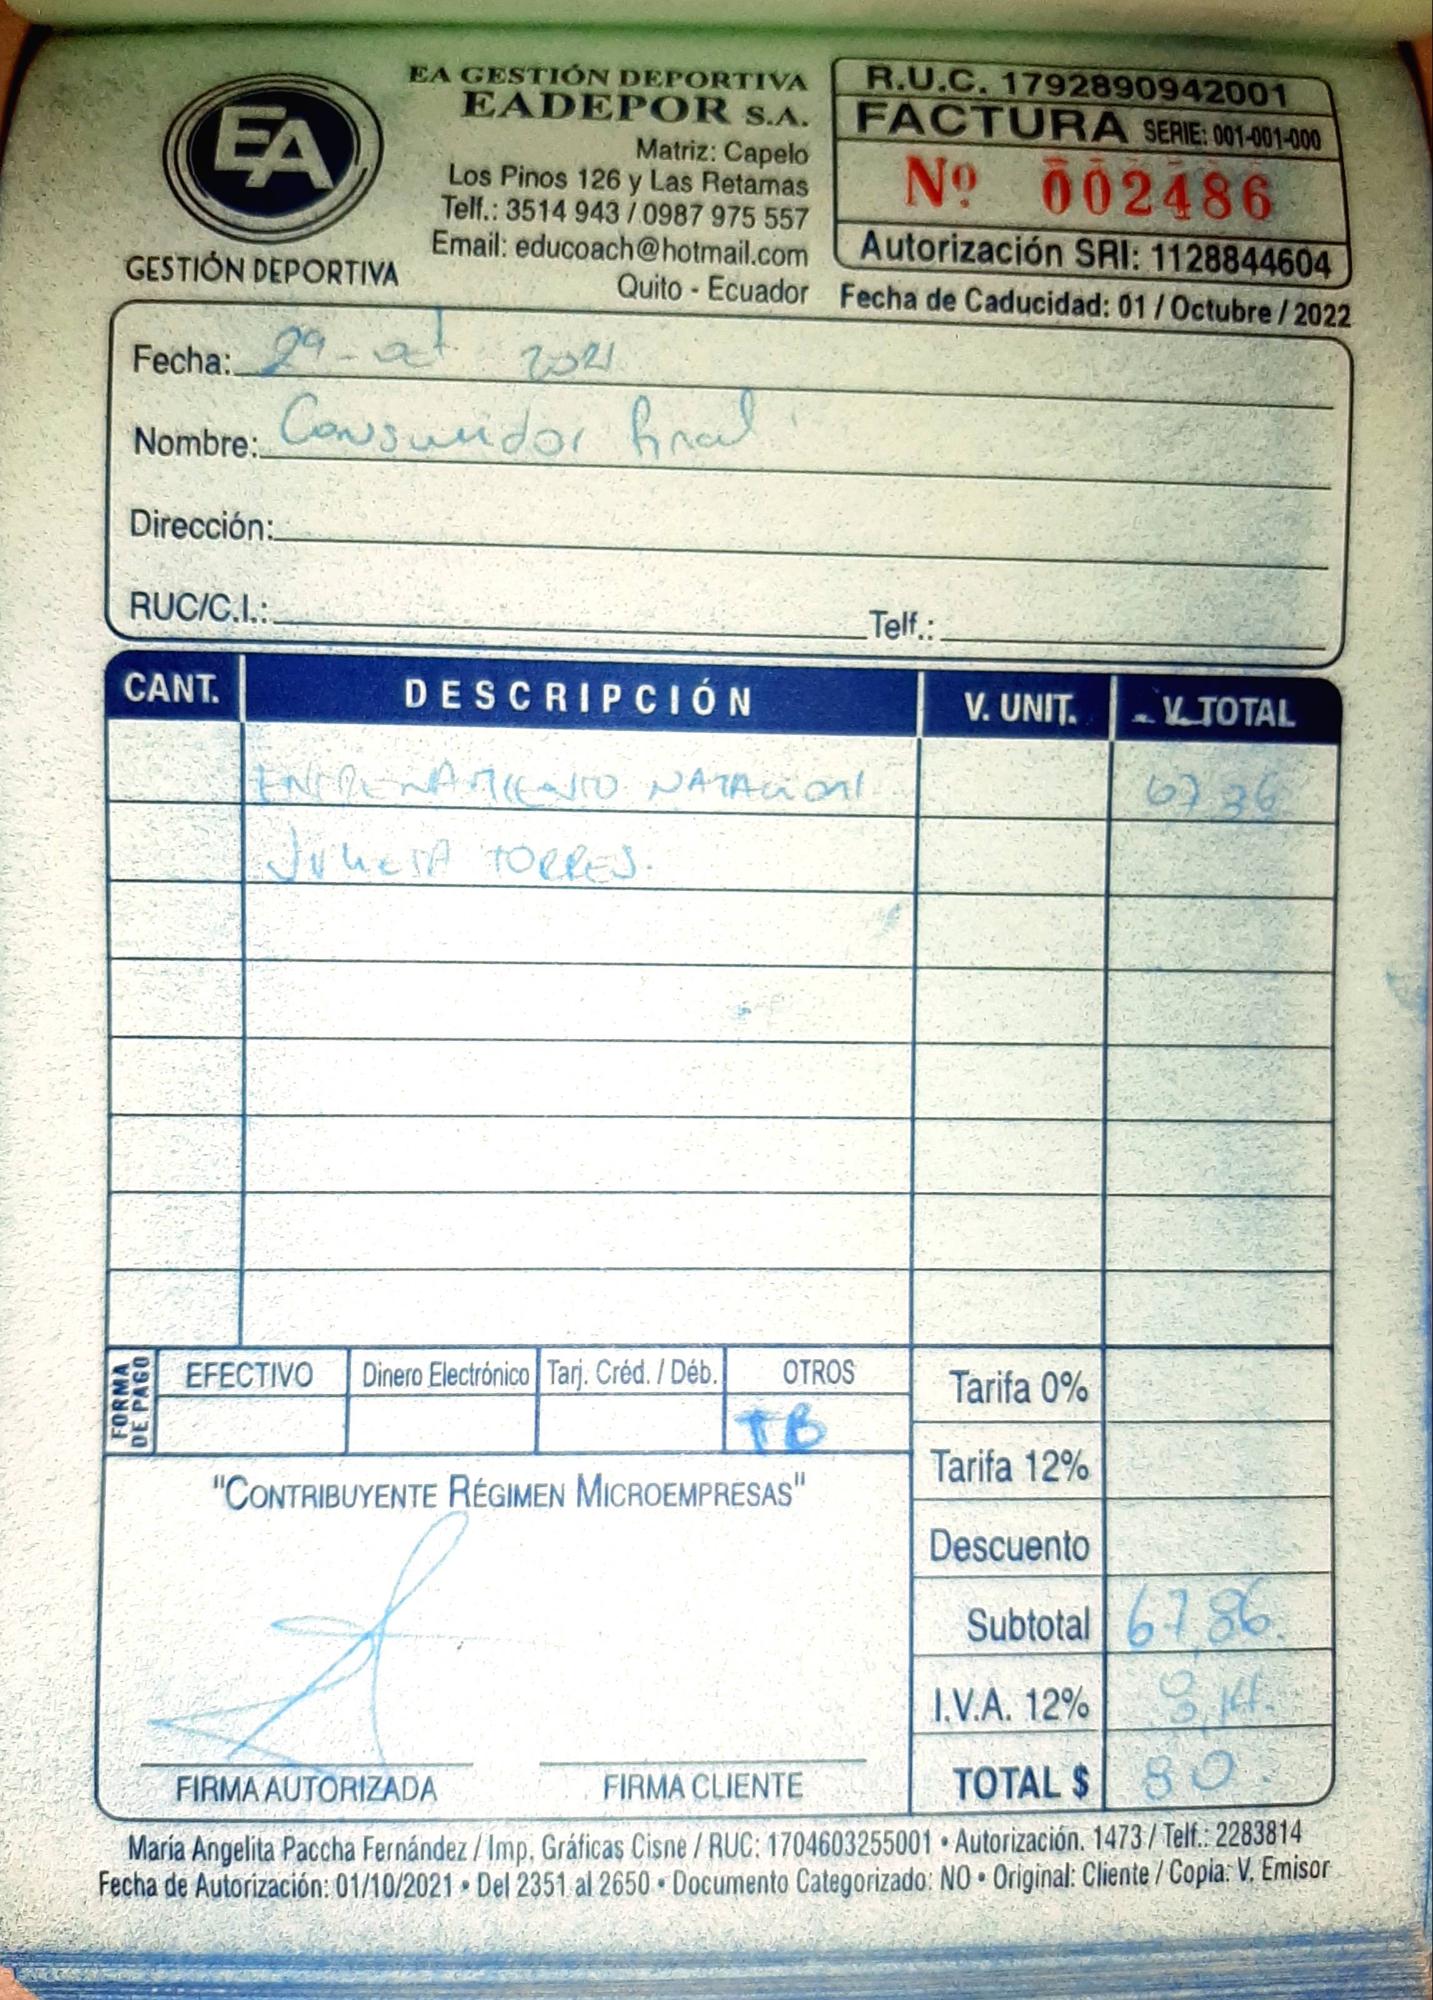 EA
GESTIÓN DEPORTIVA
EA GESTIÓN DEPORTIVA
EADEPOR S.A.
Matriz: Capelo
Los Pinos 126 y Las Retamas
Telf.: 3514 943 / 0987 975 557
Email: educoach@hotmail.com
Quito - Ecuador
R.U.C. 1792890942001
FACTURA SERIE: 001-001-000
Nº 002486
Autorización SRI: 1128844604
Fecha de Caducidad: 01 / Octubre / 2022
Fecha: 29 - oct 2021
Nombre: Consumidor final
Dirección:
RUC/C.I.: Telf.:
CANT. DESCRIPCIÓN V. UNIT. V. TOTAL
ENTRENAMIENTO NATACION
JULIETA TORRES.
FORMA DE PAGO
EFECTIVO Dinero Electrónico Tarj. Créd. / Déb. OTROS
TB
Tarifa 0%
Tarifa 12%
Descuento
Subtotal 67,86.
I.V.A. 12% 8,14.
TOTAL $ 80.
"CONTRIBUYENTE RÉGIMEN MICROEMPRESAS"
FIRMA AUTORIZADA FIRMA CLIENTE
María Angelita Paccha Fernández / Imp. Gráficas Cisne / RUC: 1704603255001 • Autorización. 1473 / Telf.: 2283814
Fecha de Autorización: 01/10/2021 • Del 2351 al 2650 • Documento Categorizado: NO • Original: Cliente / Copia: V. Emisor